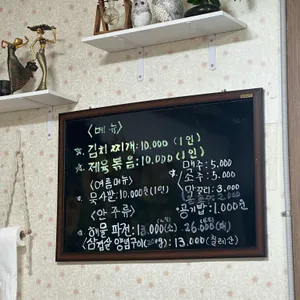 <메 뉴>
김치찌개: 10.000 (1인)
제육볶음: 10.000 (1인)
<여름메뉴>
묵사발: 10.000원 (1인)
<안 주류>
해물 파전: 13.000(소) 26.000(대)
삼겹살 양념구이 13.000
맥주: 5.000
소주: 5.000
막걸리: 3.000
공기밥: 1.000원